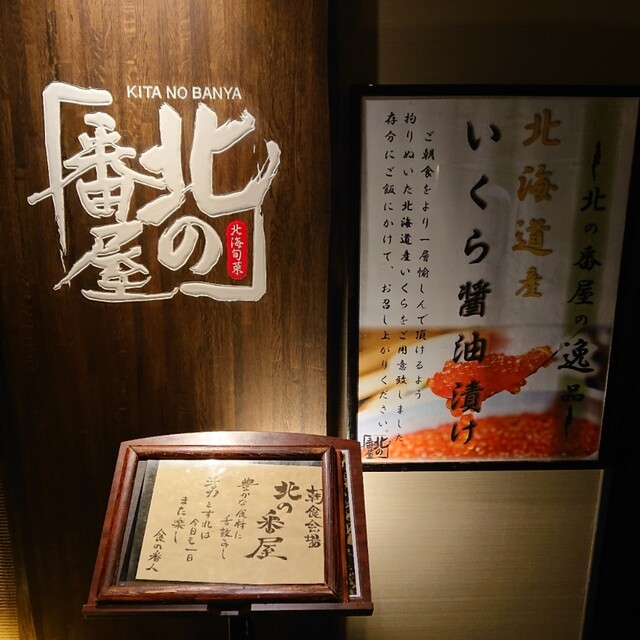 KITA NO BANYA
北の
番屋
北海旬菜
北の番屋の逸品
北海道産
いくら醤油漬け
ご朝食をより一層愉しんで頂けるよう
拘りぬいた北海道産いくらをご用意致しました
存分にご飯にかけて、お召し上がりください。
北の
番屋
朝食会場
北の番屋
豊かな食材に
舌鼓みし
活力とすれば
今日も一日
また楽し
食の番人